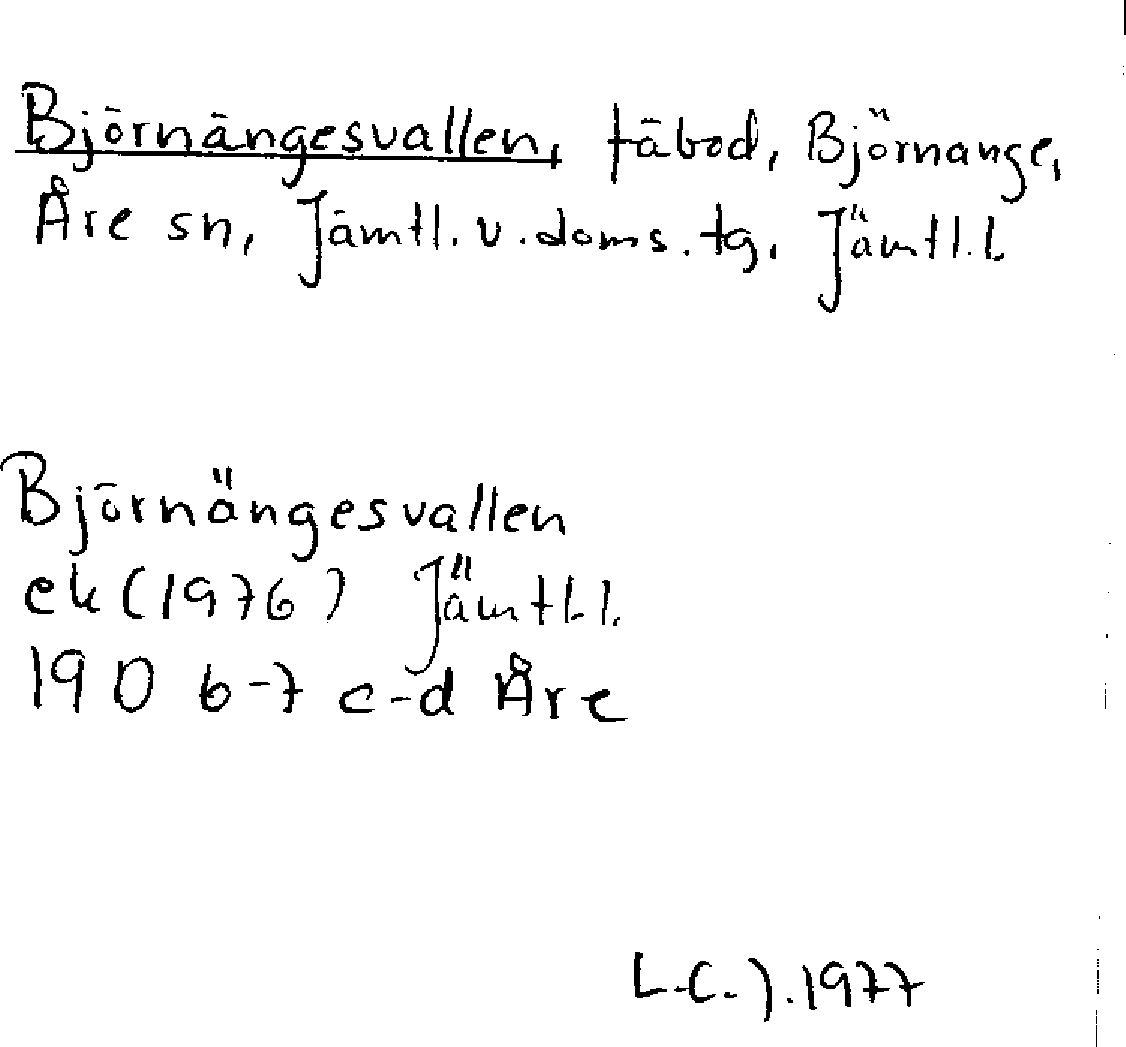 Björnängesvallen, fäbod, Björnänge,
Åre sn, Jämtl. v. doms. tg. Jämtl. l
Björnängesvallen
ek (1976) Jämtl. l.
19D 6-7 c-d Åre
L-C. J. 1977